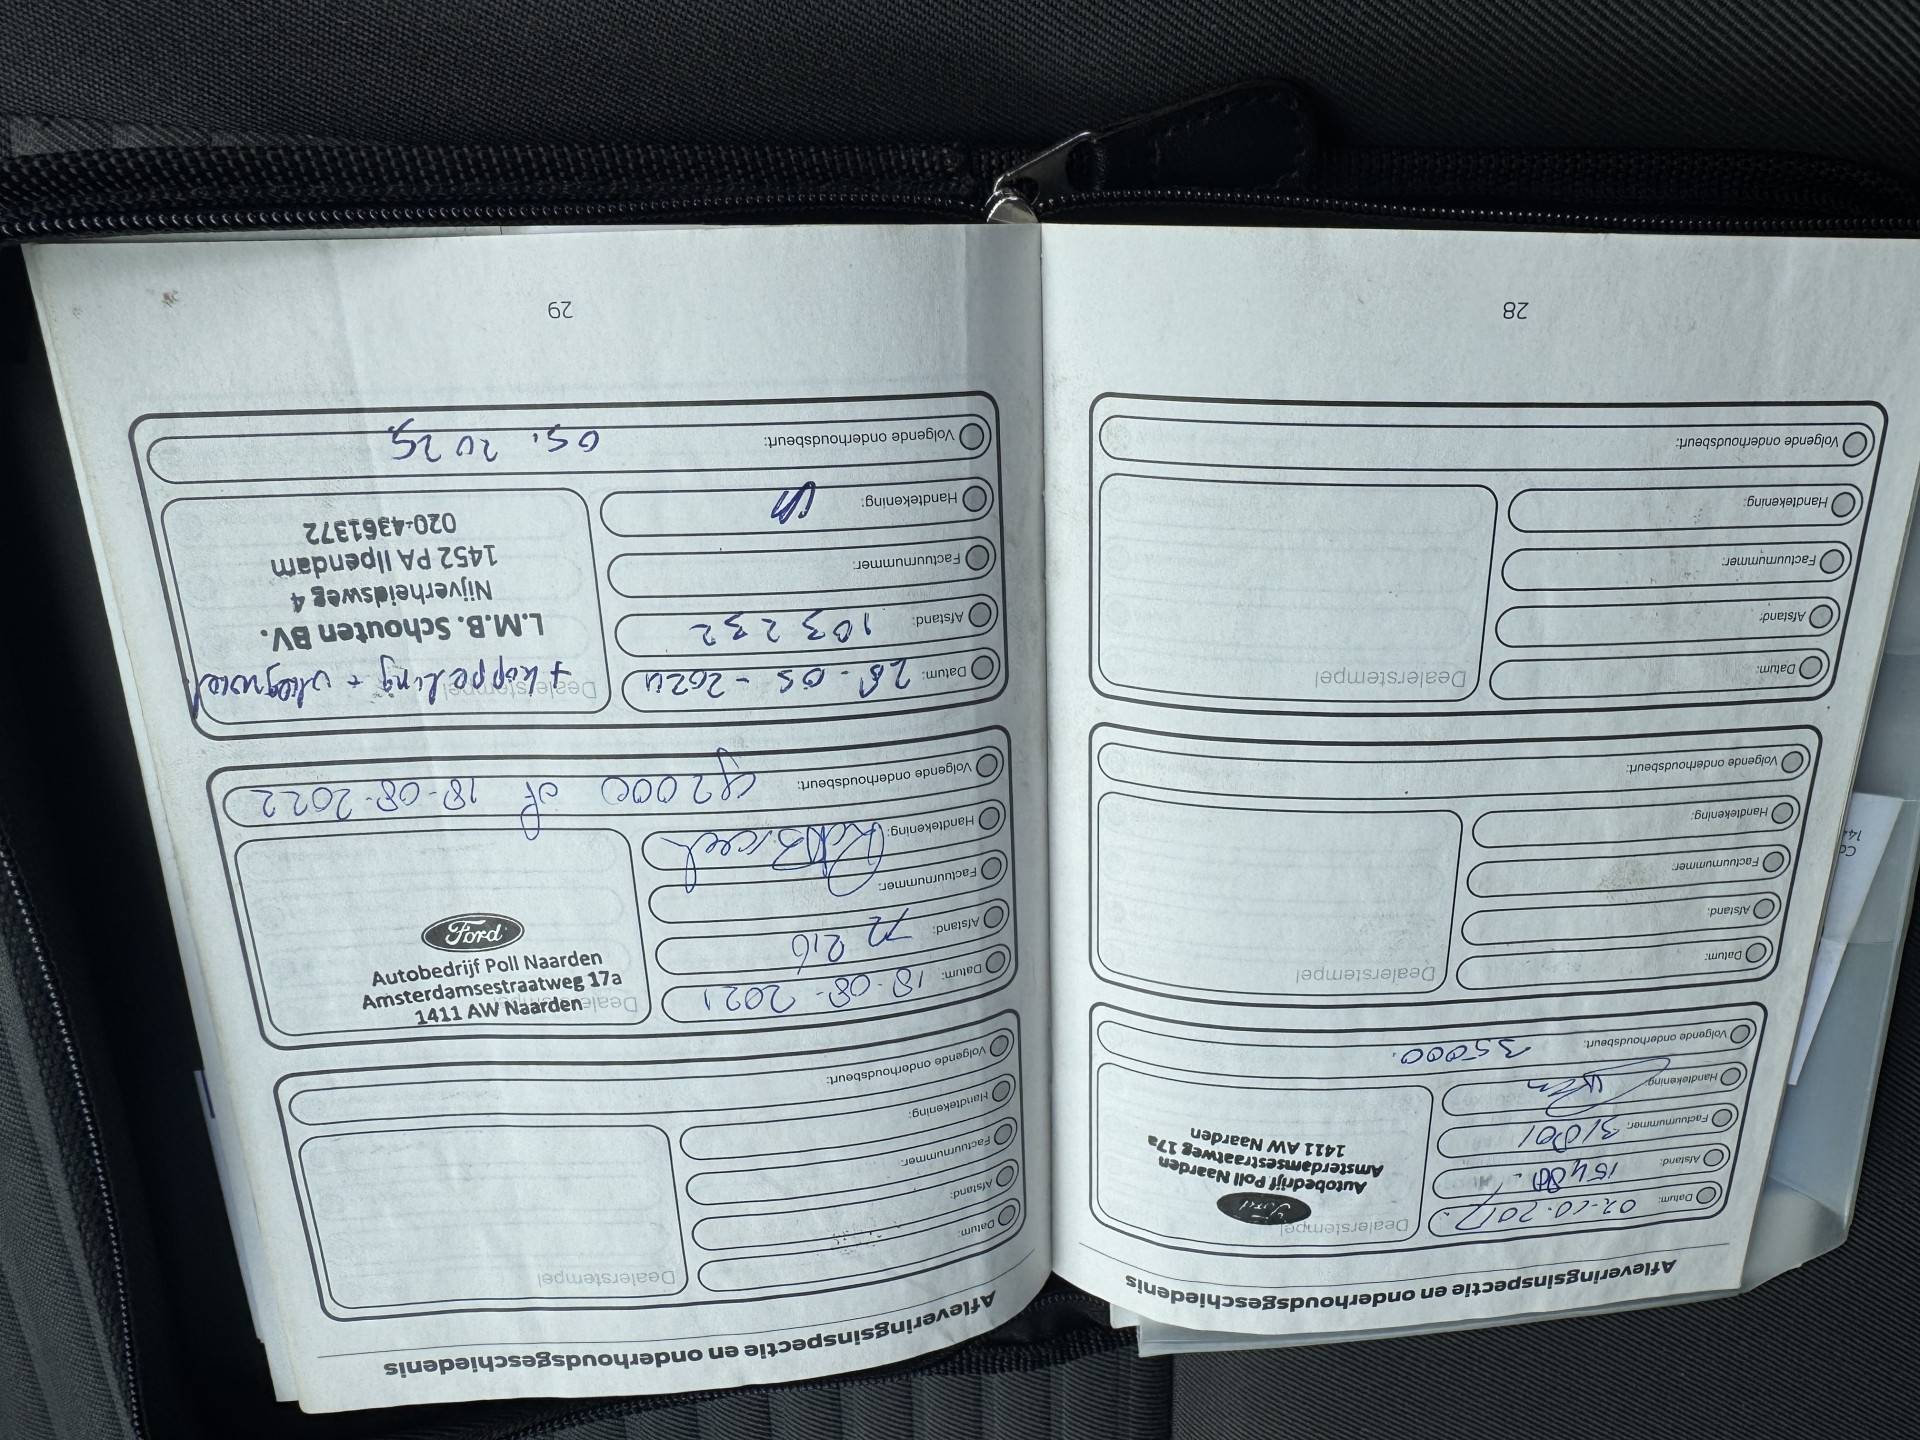 Afleveringsinspectie en onderhoudsgeschiedenis
Datum: 02-10-2017.
Afstand: 15480.
Factuurnummer: 31801
Handtekening:
Volgende onderhoudsbeurt: 35000.
Dealerstempel
Ford
Autobedrijf Poll Naarden
Amsterdamsestraatweg 17a
1411 AW Naarden
Datum:
Afstand:
Factuurnummer:
Handtekening:
Volgende onderhoudsbeurt:
Dealerstempel
Datum:
Afstand:
Factuurnummer:
Handtekening:
Volgende onderhoudsbeurt:
Dealerstempel
28
Afleveringsinspectie en onderhoudsgeschiedenis
Datum:
Afstand:
Factuurnummer:
Handtekening:
Volgende onderhoudsbeurt:
Dealerstempel
Datum: 18-08-2021
Afstand:
Factuurnummer:
Handtekening:
Volgende onderhoudsbeurt: 92000 of 18-08-2022
Dealerstempel
1411 AW Naarden
Amsterdamsestraatweg 17a
Autobedrijf Poll Naarden
Ford
Datum: 28-05-2024
Afstand: 103232
Factuurnummer:
Handtekening:
Volgende onderhoudsbeurt: 05. 2025.
Dealerstempel
+ koppeling + vliegwiel
L.M.B. Schouten BV.
Nijverheidsweg 4
1452 PA Ilpendam
020-4361372
29